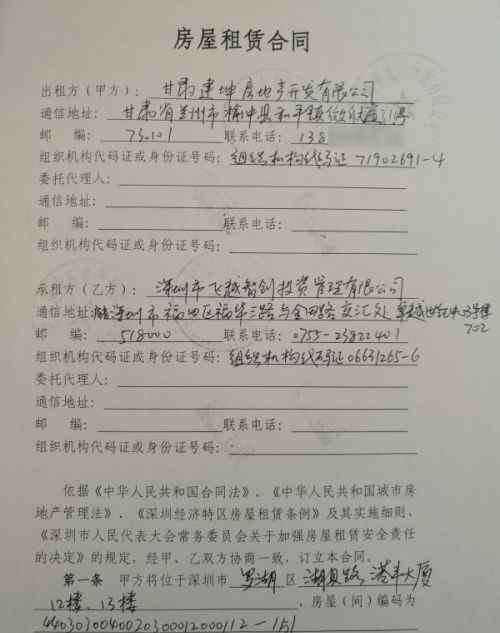 房屋租赁合同
出租方（甲方）：甘肃建坤房地产开发有限公司
通信地址：甘肃省兰州市榆中县和平镇
邮 编：73.101 联系电话：138
组织机构代码证或身份证号码：组织机构代码证 71902691-4
委托代理人：
通信地址：
邮 编： 联系电话：
组织机构代码证或身份证号码：
承租方（乙方）：深圳市飞越智创投资管理有限公司
通信地址：深圳市福田区福华三路与金田路交汇处 卓越世纪中心3号楼
702
邮 编：518000 联系电话：0755-23822401
组织机构代码证或身份证号码：组织机构代码证06631265-6
委托代理人：
通信地址：
邮 编： 联系电话：
组织机构代码证或身份证号码：
依据《中华人民共和国合同法》、《中华人民共和国城市房
地产管理法》、《深圳经济特区房屋租赁条例》及其实施细则、
《深圳市人民代表大会常务委员会关于加强房屋租赁安全责任
的决定》的规定，经甲、乙双方协商一致，订立本合同。
第一条 甲方将位于深圳市 罗湖 区 湖贝路，港丰大厦
12楼、13楼 ，房屋（间）编码为
4403030040020300012000112-151